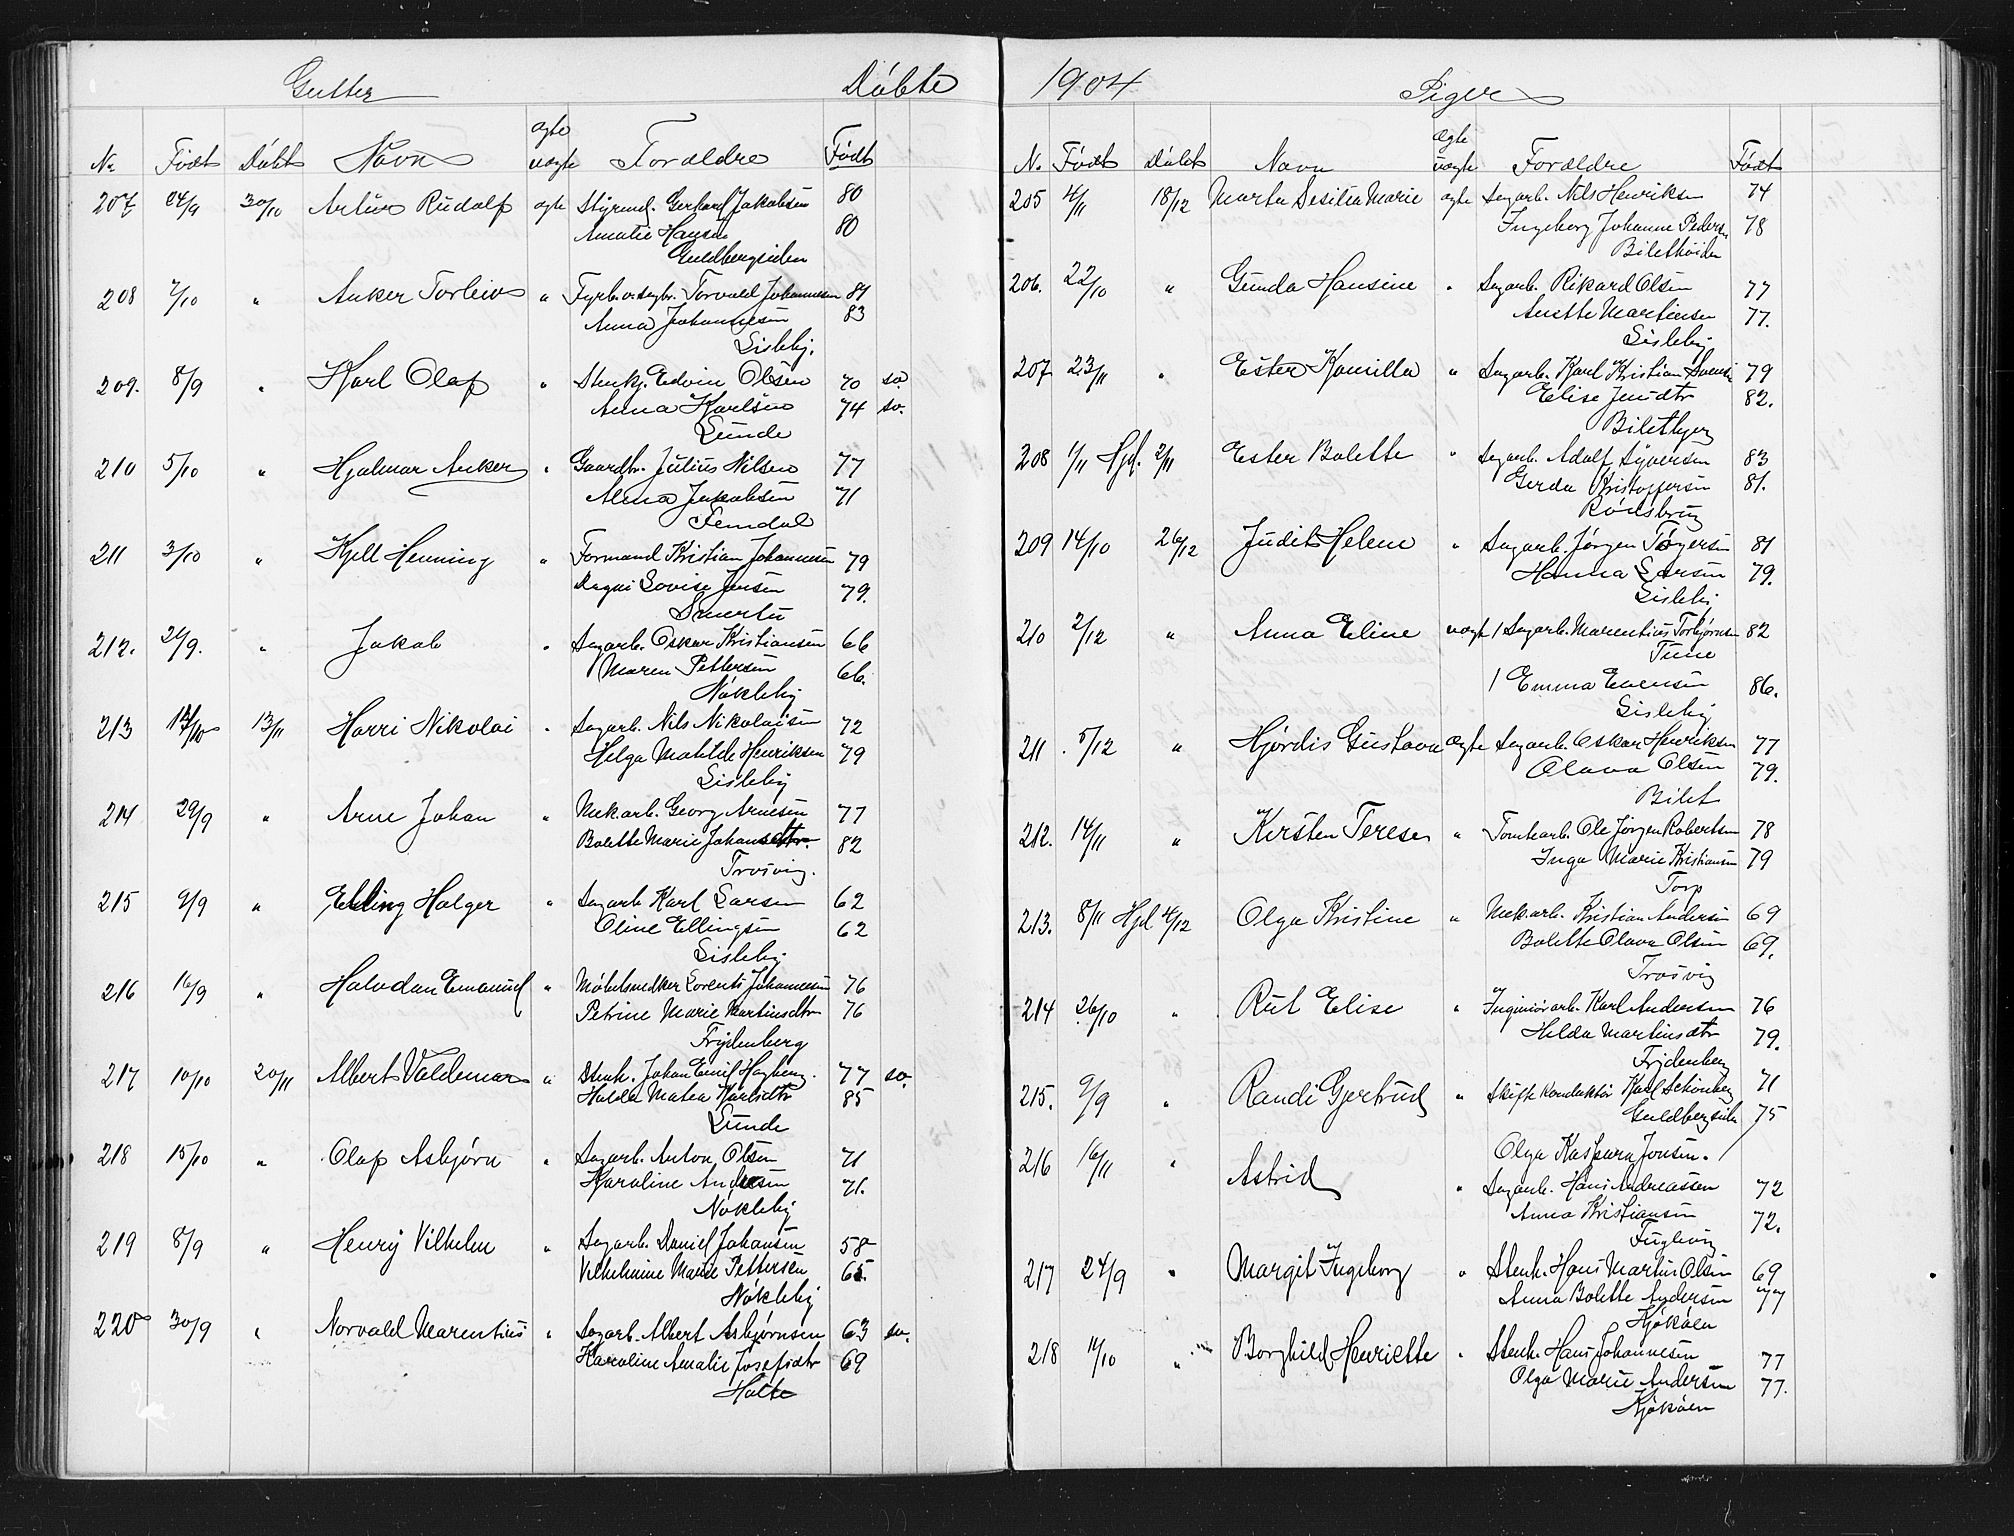 Gutter Døbte
Nr Født Døbt Navn ægte uægte Forældre Født
207 24/9 30/10 Artur Rudolf ægte Styrmd. Gerhard Jakobsen 80
Amalie Hansen 80
Guldbergsiden
208 7/10 " Anker Torleiv " Fyrb. Torvald Johannesen 81
Anna Johannesen 83
Lisleby.
209. 8/9 " Karl Olaf " Stenhj. Edvin Olsen 70 sv.
Anna Karlsen 74 sv.
Lunde
210 5/10 " Hjalmar Anker " Gaardbr. Julius Nilsen 77
Alma Jakobsen 71
Femdal
211 3/10 " Kjell Henning " Formand Kristian Johannesen 79
Dagni Lovise Jensen 79.
Smertu
212. 29/9. " Jakob " Sagarb. Oskar Kristiansen 66
Maren Pettersen 66.
Nøkleby
213 14/10 13/11 Harri Nikolai " Sagarb. Nils Nikolaisen 72
Helga Matilde Henriksen 79
Lisleby
214 29/9 " Arne Johan " Mek.arb. Georg Arnesen 77
Bolette Marie Johansdtr. 82
Trosvig.
215 9/9 " Elling Holger " Sagarb. Karl Larsen 62
Oline Ellingsen 62
Lisleby
216 16/9 " Halvdan Emanuel " Møbelsnedker Lorents Johannesen 76
Petrine Marie Martinsdtr 76
Frydenberg
217 10/10 20/11 Albert Valdemar " Stenh. Johan Emil Hagberg. 77 sv.
Hulda Matea Karlsdtr 85
Lunde
218 15/10 " Olaf Asbjørn " Sagarb. Anton Olsen 71
Karoline Andersen 71.
Nøkleby
219 8/9 " Henry Vilhelm " Sagarb. Daniel Johansen 58
Vilhelmine Marie Pettersen 65.
Nøkleby
220 30/9 " Norvald Marentius " Sagarb. Albert Asbjørnsen 63 sv.
Karoline Amalie Josefsdtr 69
Holte
1904 Piger
N. Født Døbt Navn Ægte uægte Forældre Født
205 4/11 18/12 Marta Sesilia Marie ægte Sagarb. Nils Henriksen 74
Ingeborg Johanne Pedersen 78
206. 22/10 " Gunda Hansine " Sagarb. Rikard Olsen 77
Anette Martinsen 77.
Lisleby
207 23/11 " Ester Kamilla " Sagarb. Karl Kristian Svensen 79
Elise Jensdtr 82.
Biletbyen
208 1/11 Hjd. 2/11 Ester Bolette " Sagarb. Adolf Syversen 83
Gerda Kristoffersen 81.
Rødsbrug
209 14/10 26/12 Judit Helene " Sagarb. Jørgen Torgersen 81
Hanna Larsen 79.
Lisleby
210 2/12 " Anna Eline uægt 1 Sagarb. Marentius Torbjørnsen 82
Tune
1 Emma Evensen 86.
Lisleby
211 5/12 " Hjørdis Gustava Ægte Sagarb. Oskar Henriksen 77
Olava Olsen 79.
Bilet
212. 14/11 " Kirsten Terese " Tomtearb. Ole Jørgen Robertsen 78
Inga Marie Kristiansen 79
Torp
213. 8/11 Hjd 4/12 Olga Kristine " Mek.arb. Kristian Andersen 69
Bolette Olava Olsen 69.
Trosvig
214 26/10 " Rut Elise " Ingeniørarb. Karl Andersen 76
Hilda Martinsdtr 79.
Frydenberg
215. 9/9 " Randi Gjertrud " Skiftekonduktør Karl Schønberg 71
Guldbergsiden 75
Olga Kaspara Jensen.
216 16/11 " Astrid " Sagarb. Hans Andreassen 72
Anna Kristiansen 72.
Fuglevig
217 24/9 " Margit Ingeborg " Stenh. Hans Martin Olsen 69
Anna Bolette Andersen 77
Kjøkøen
218 11/10 " Borghild Henriette " Stenh. Hans Johannesen 77
Olga Marie Andersen 77.
Kjøkøen